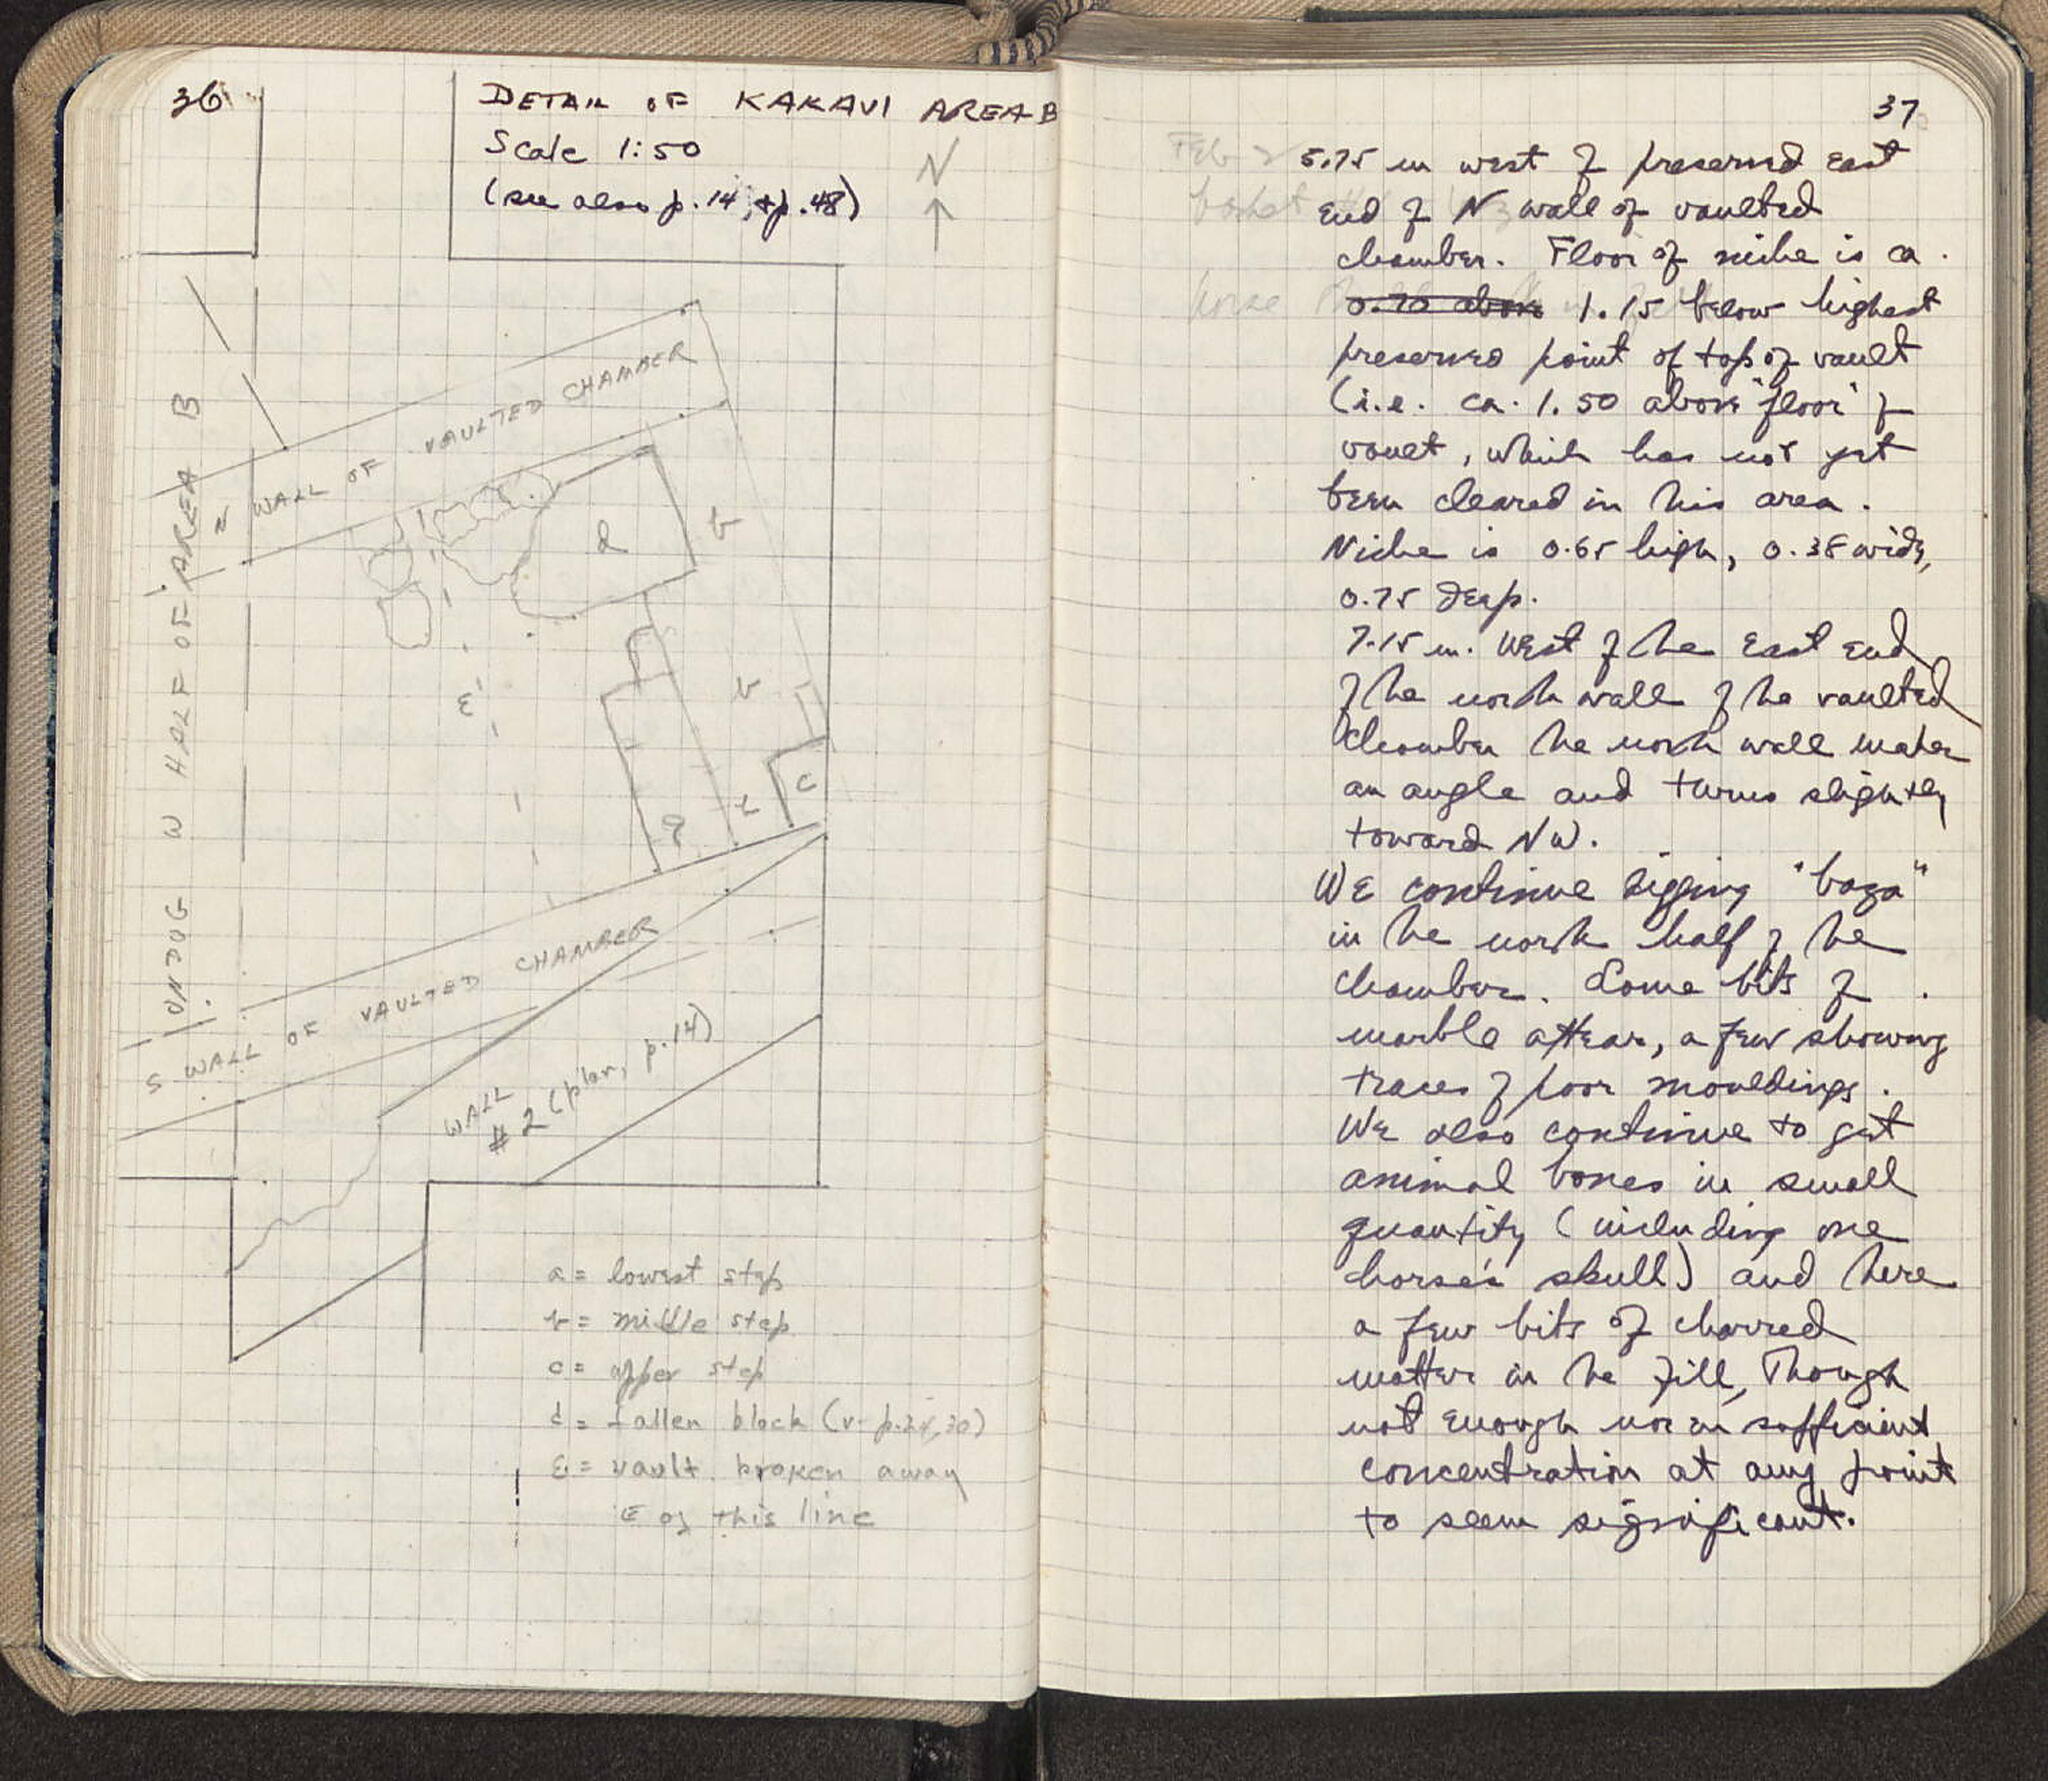 36
DETAIL OF KAKAVI AREA B
Scale 1:50
(see also p. 14, + p. 48)
N
UNDUG W HALF OF AREA B
N WALL OF VAULTED CHAMBER
d
b
b
ε
c
b
a
S WALL OF VAULTED CHAMBER
WALL
#2 (plan, p. 14)
a = lowest step
b = middle step
c = upper step
d = fallen block (v. p. 30)
ε = vault broken away
E of this line
37
Feb 2
basket
horse
5.75 m west of preserved East
End of N wall of vaulted
chamber. Floor of niche is ca.
0.70 above 1.15 below highest
preserved point of top of vault
(i.e. ca. 1.50 above "floor" of
vault, which has not yet
been cleared in this area.
Niche is 0.65 high, 0.38 wide,
0.75 deep.
7.15 m. West of the East End
of the north wall of the vaulted
chamber the north wall makes
an angle and turns slightly
toward NW.
We continue digging "baga"
in the north half of the
chamber. Some bits of
marble appear, a few showing
traces of poor mouldings.
We also continue to get
animal bones in small
quantity (including one
horse's skull) and here
a few bits of charred
matter in the fill, Though
not enough nor in sufficient
concentration at any point
to seem significant.